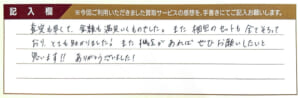 記入欄 ※今回ご利用いただきました買取サービスの感想を、手書きにてご記入お願いします。
査定も早くて、金額も満足いくものでした。また梱包のセットも全てそろって
おり、とても助かりました。また機会があればぜひお願いしたいと
思います!! ありがとうございました!